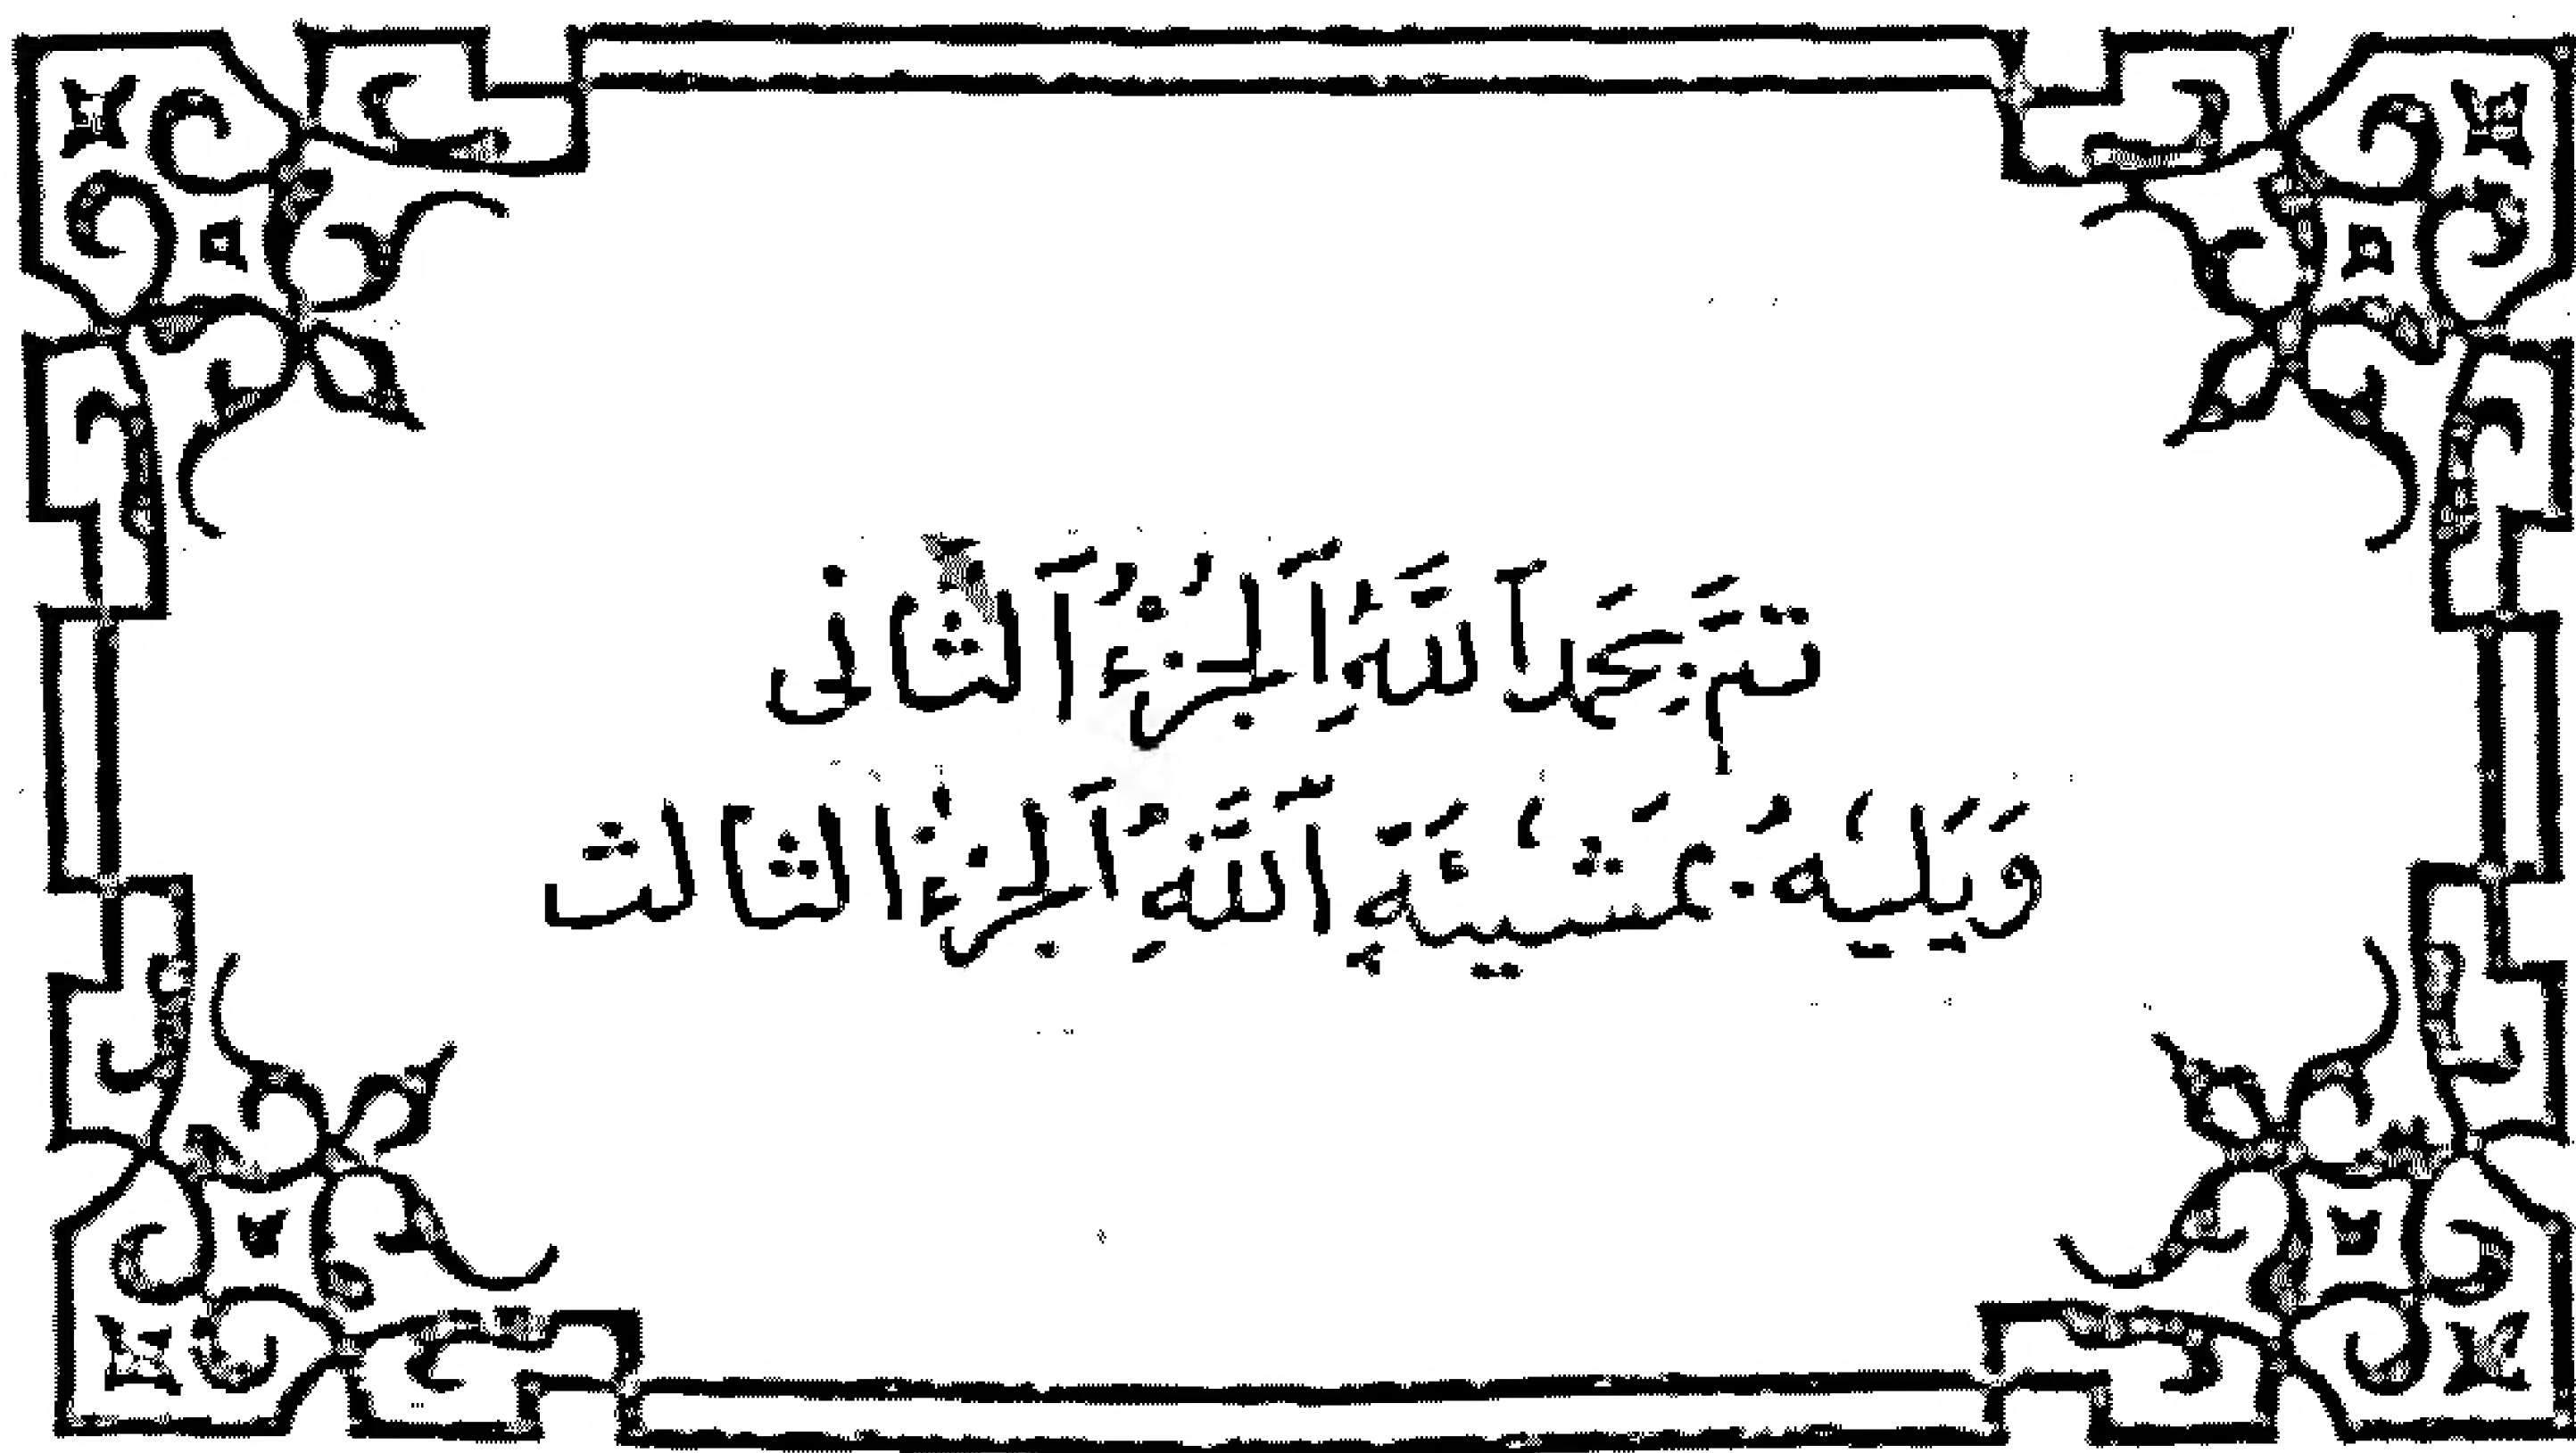 تَمَّ بِحَمَدِ اللَّهِ الْجُزْءُ الثَّانِى
وَيَلِيهُ بِمَشِيئَةِ اللَّهِ الْجُزْءُ الثَّالث